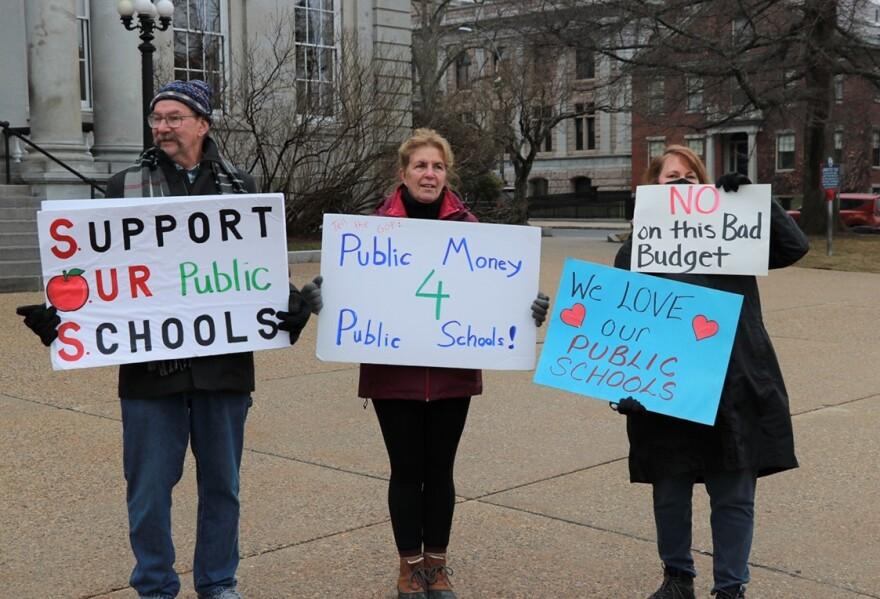 S.UPPORT
.UR Public
S.CHOOLS
Tell the GOP:
Public Money
4
Public Schools!
NO
on this Bad
Budget
We LOVE
our
PUBLIC
SCHOOLS